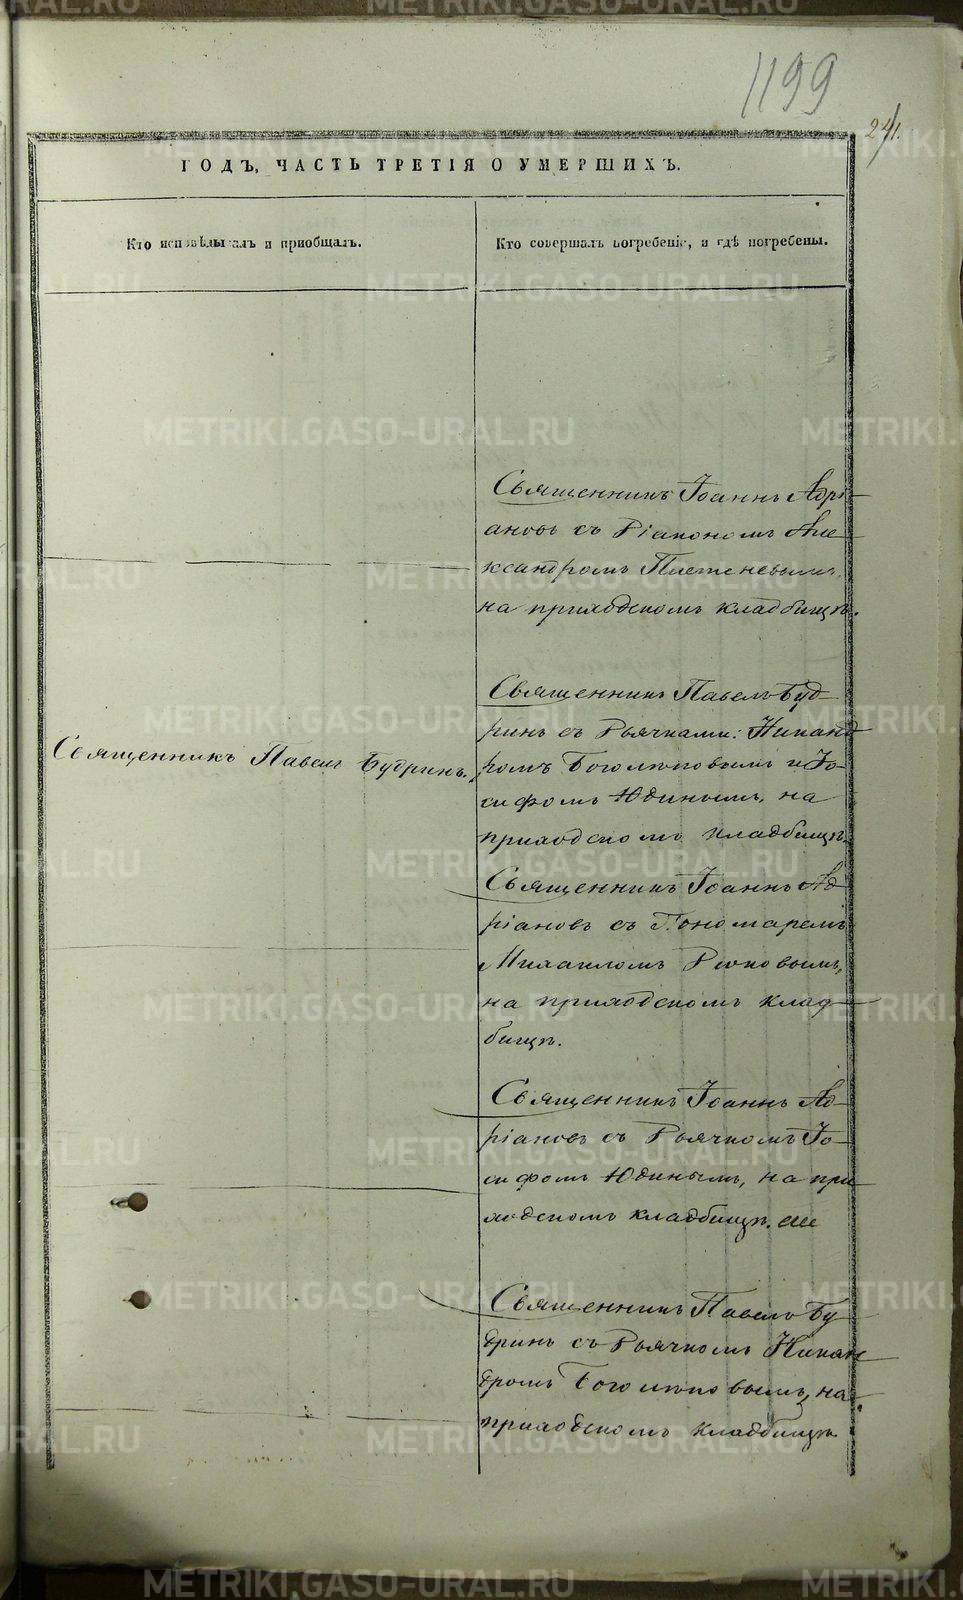 1199
241.
ГОДЪ, ЧАСТЬ ТРЕТІЯ О УМЕРШИХЪ.
Кто исповѣдывалъ и пріобщалъ.
Кто совершалъ погребеніе, и гдѣ погребены.
Священникъ Іоаннъ Адрі-
ановъ съ Діакономъ Але-
ксандромъ Плетеневымъ,
на приходскомъ кладбищѣ.
Священникъ Павелъ Будринъ.
Священникъ Павелъ Буд-
ринъ съ Дьячками: Никанд
ромъ Боголюповымъ и Іо-
сифомъ Юдинымъ, на
приходскомъ кладбищѣ.
Священникъ Іоаннъ Ад-
ріановъ съ Пономаремъ
Михаиломъ
на приходскомъ клад-
бищѣ.
Священникъ Іоаннъ Ад-
ріановъ съ Дьячкомъ Іо-
сифомъ Юдинымъ, на при
ходскомъ кладбищѣ.
Священникъ Павелъ Бу
дринъ съ Дьячкомъ Никан
дромъ Боголюповымъ, на
приходскомъ кладбищѣ.
METRIKI.GASO-URAL.RU